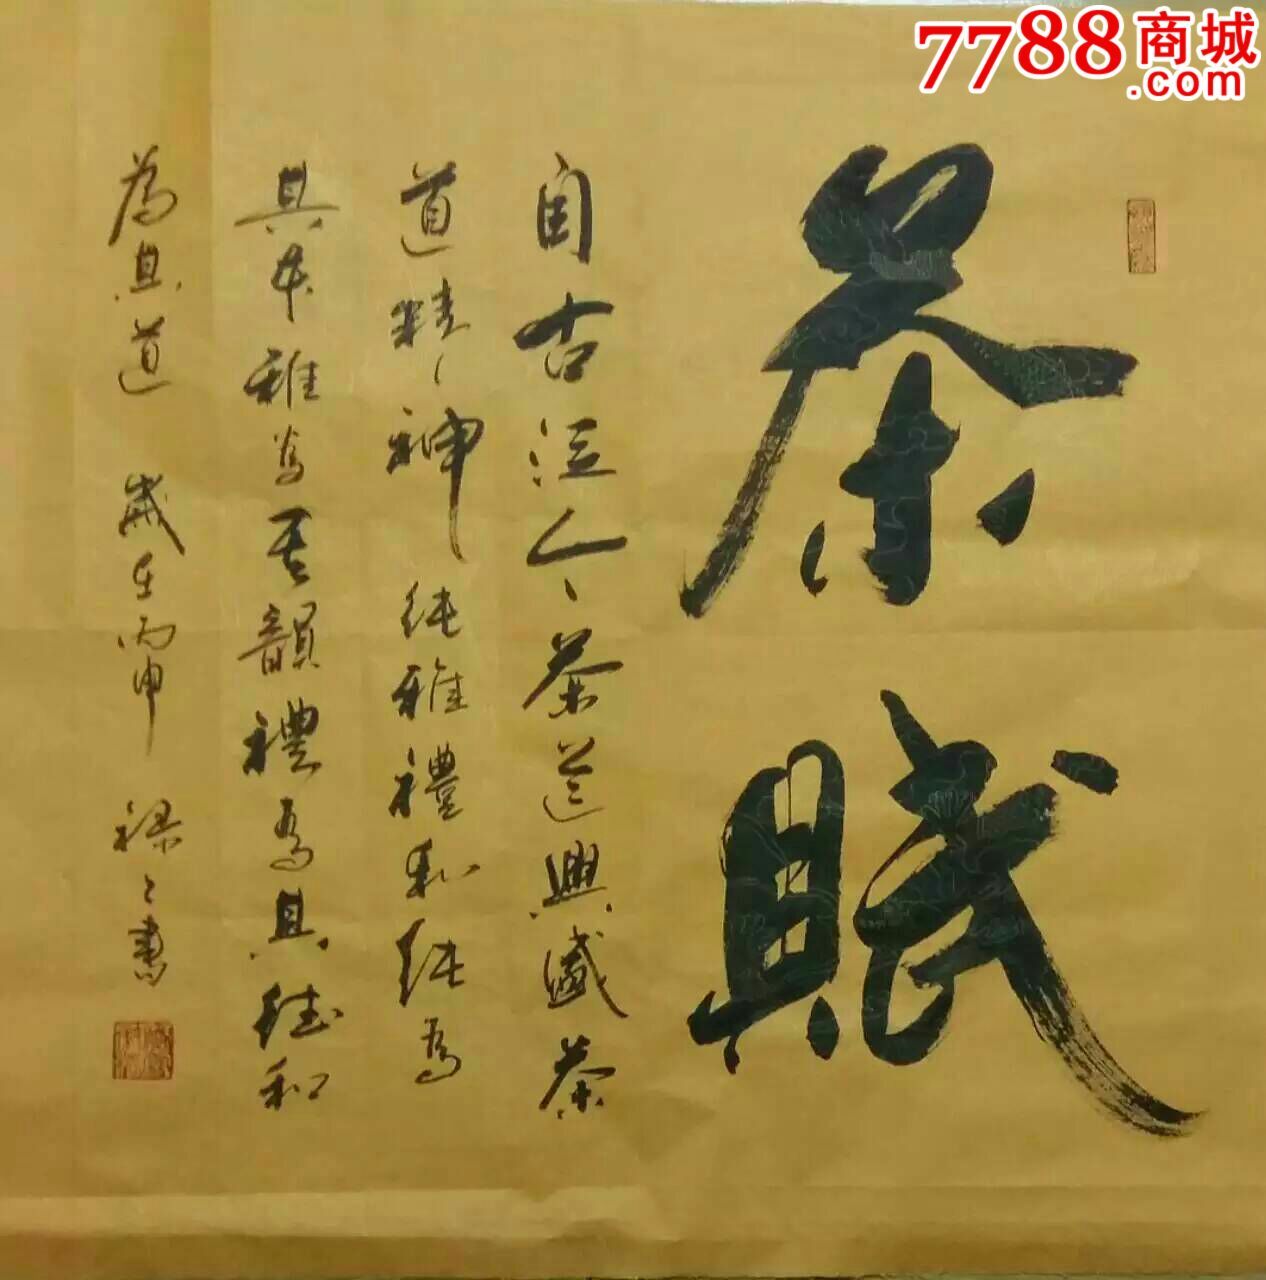 7788商城
.com
茶賦
自古迄今、茶道興盛茶
道精、神純雅禮和純為
其本雅為其韻禮為其德和
為其道 歲在丙申 書